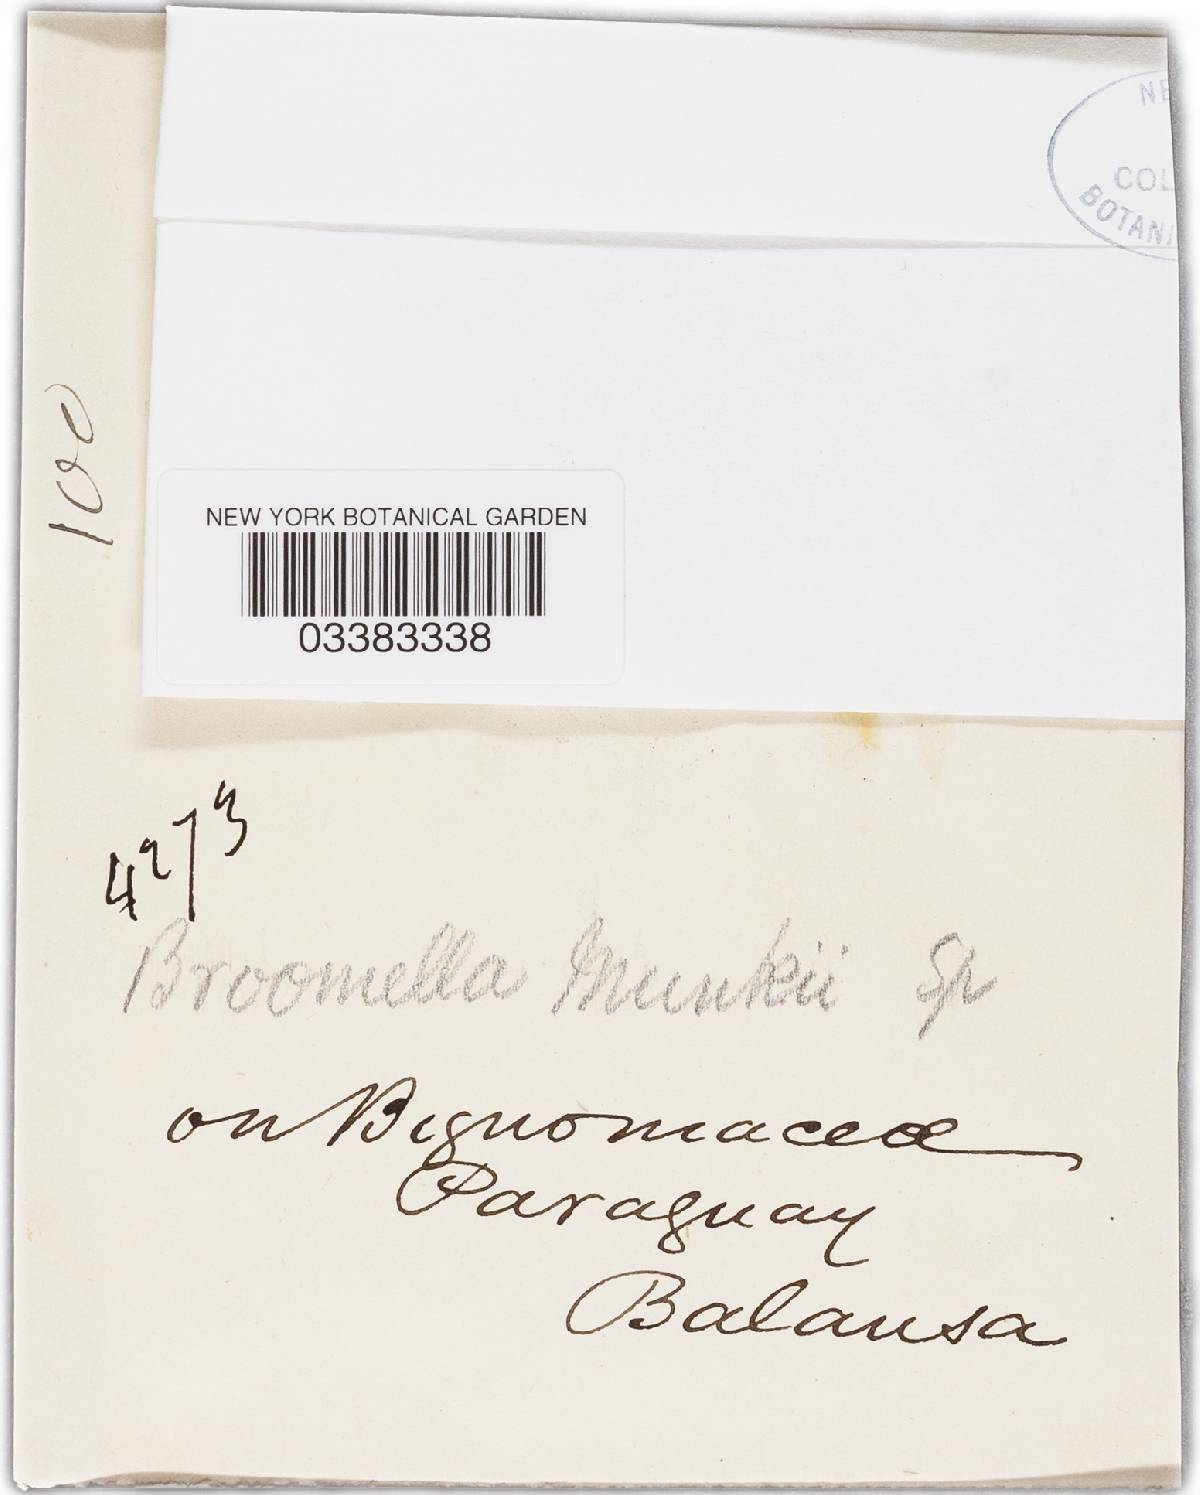 NE
COL
BOTANI
100
NEW YORK BOTANICAL GARDEN
03383338
4273
Broomella Munkii Sp
on Bignomaceae
Paraguay
Balansa